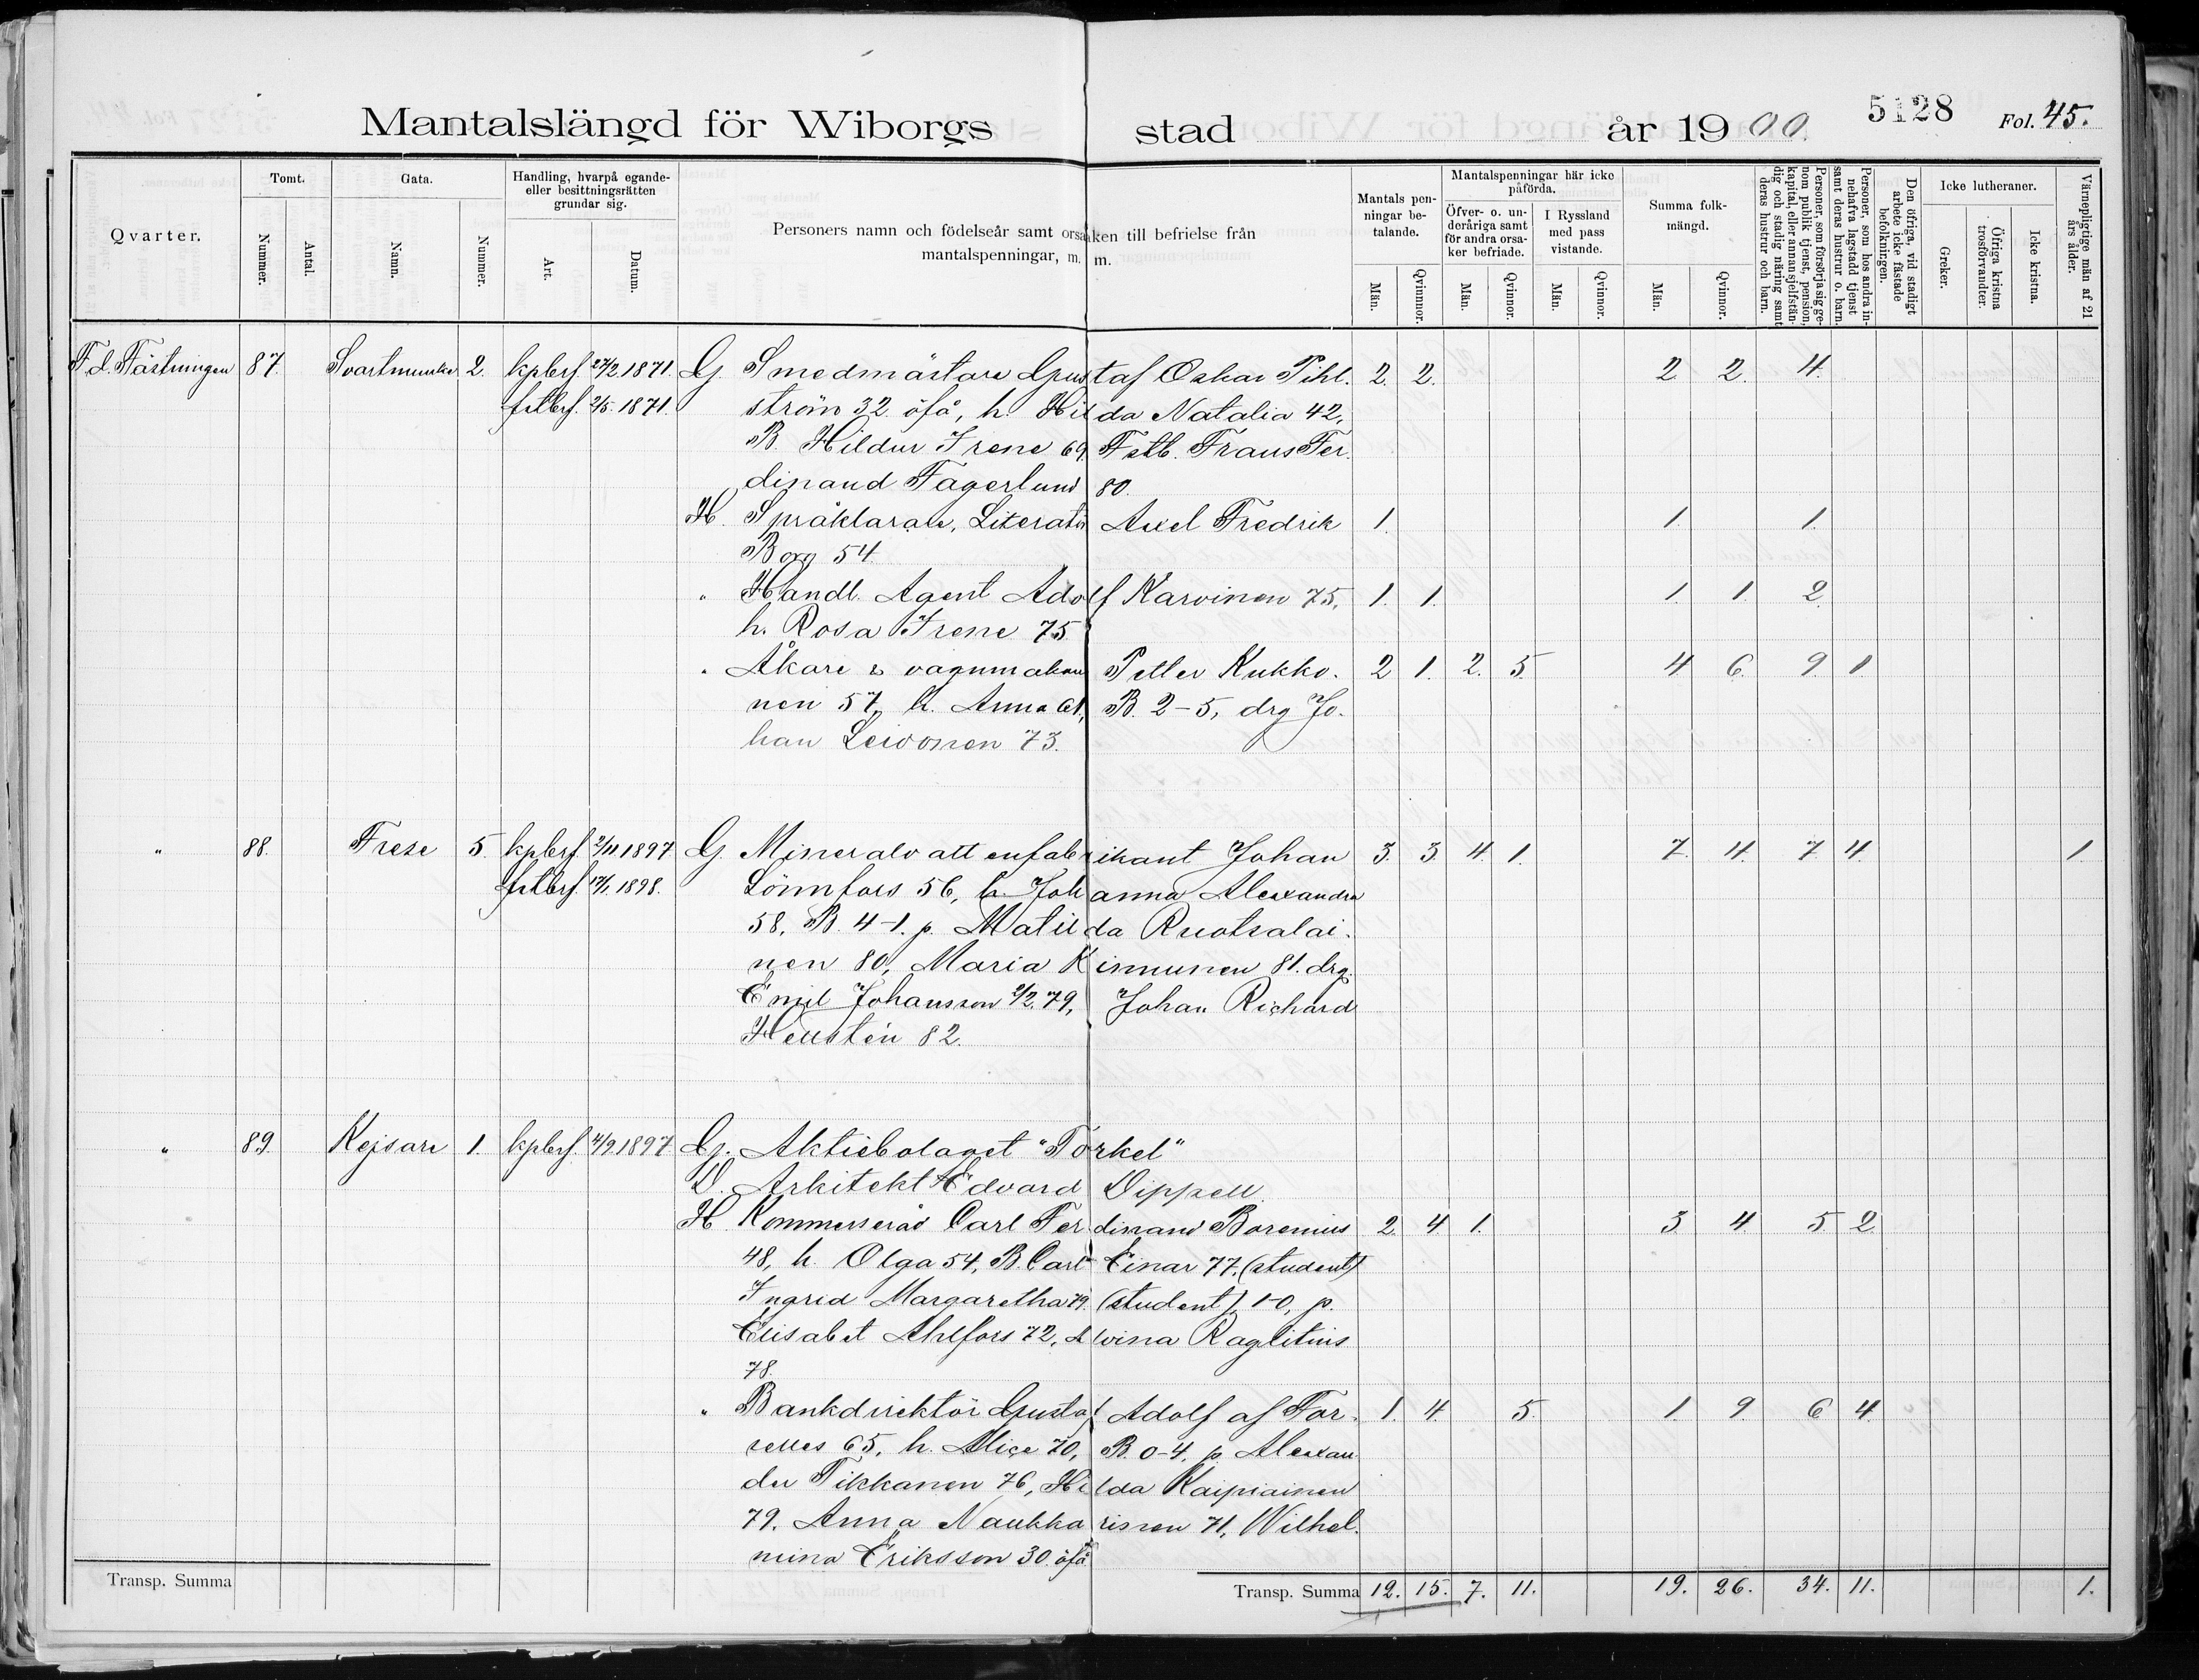 Mantalslängd för Wiborgs stad år 1900. 5128 Fol. 45.
Qvarter. Tomt. Gata. Handling, hvarpå egande- eller besittningsrätten grundar sig.
Nummer. Antal. Namn. Nummer. Art. Datum.
Personers namn och födelseår samt orsaken till befrielse från mantalspenningar, m. m.
Mantals penningar betalande. Män. Qvinnor.
Mantalspenningar här icke påförda.
Öfver- o. underåriga samt för andra orsaker befriade. Män. Qvinnor.
I Ryssland med pass vistande. Män. Qvinnor.
Summa folkmängd. Män. Qvinnor.
Personer, som försörja sig genom publik tjenst, pension, kapital, eller annan sjelfständig och stadig näring samt deras hustrur och barn.
Personer, som hos andra innehafva lagstadd tjenst samt deras hustrur o. barn.
Den öfriga, vid stadigt arbete icke fästade befolkningen.
Icke lutheraner. Greker. Öfriga kristna trosförvandter. Icke kristna.
Värnepligtige män af 21 års ålder.
F.d. Fästningen 87. Svartmunke 2. kpbrf. 27/2 1871. G. Smedmästare Gustaf Oskar Pihl- 2. 2. 2 2. 4.
fstbrf. 2/5. 1871. ström 32 öfå, h. Hilda Natalia 42,
B. Hildur Irene 69. Fstb. Frans Fer-
dinand Fagerlund 80.
H. Språklärare, Literatör Axel Fredrik 1. 1. 1.
Borg 54.
" Handl. Agent Adolf Karvinen 75, 1. 1. 1. 1. 2.
h. Rosa Irene 75
" Åkare & vagnmakare Petter Kukko- 2 1. 2. 5. 4 6 9. 1.
nen 57, h. Anna 61, B. 2-5, drg Jo-
han Leivonen 73.
" 88. Frese 5. kpbrf. 2/11 1897 G. Mineralvattenfabrikant Johan 3. 3. 4. 1. 7. 4. 7. 4. 1
fstbrf. 17/1. 1898. Lönnfors 56, h. Johanna Alexandra
58. B. 4-1. p. Matilda Ruotsalai-
nen 80, Maria Kinnunen 81. drg.
Emil Johansson 2/2. 79, Johan Richard
Heustén 82.
" 89. Kejsare 1. kpbrf. 4/9 1897 G. Aktiebolaget "Torkel"
D. Arkitekt Edvard Dippell.
H. Kommerseråd Carl Ferdinand Borenius 2. 4. 1. 3. 4. 5. 2.
48, h. Olga 54, B. Carl Einar 77, (student)
Ingrid Margaretha 79. (student), 1-0, p.
Elisabet Ahlfors 72, Elvina Raglitius
78.
" Bankdirektör Gustaf Adolf af For- 1. 4. 5. 1. 9. 6 4.
selles 65, h. Alice 70, B. 0-4, p. Alexan-
dra Tikkanen 76, Hilda Kaipiainen
79. Anna Naukkarinen 71, Wilhel-
mina Eriksson 30 öfå
Transp. Summa Transp. Summa 12. 15. 7. 11. 19. 26. 34. 11. 1.